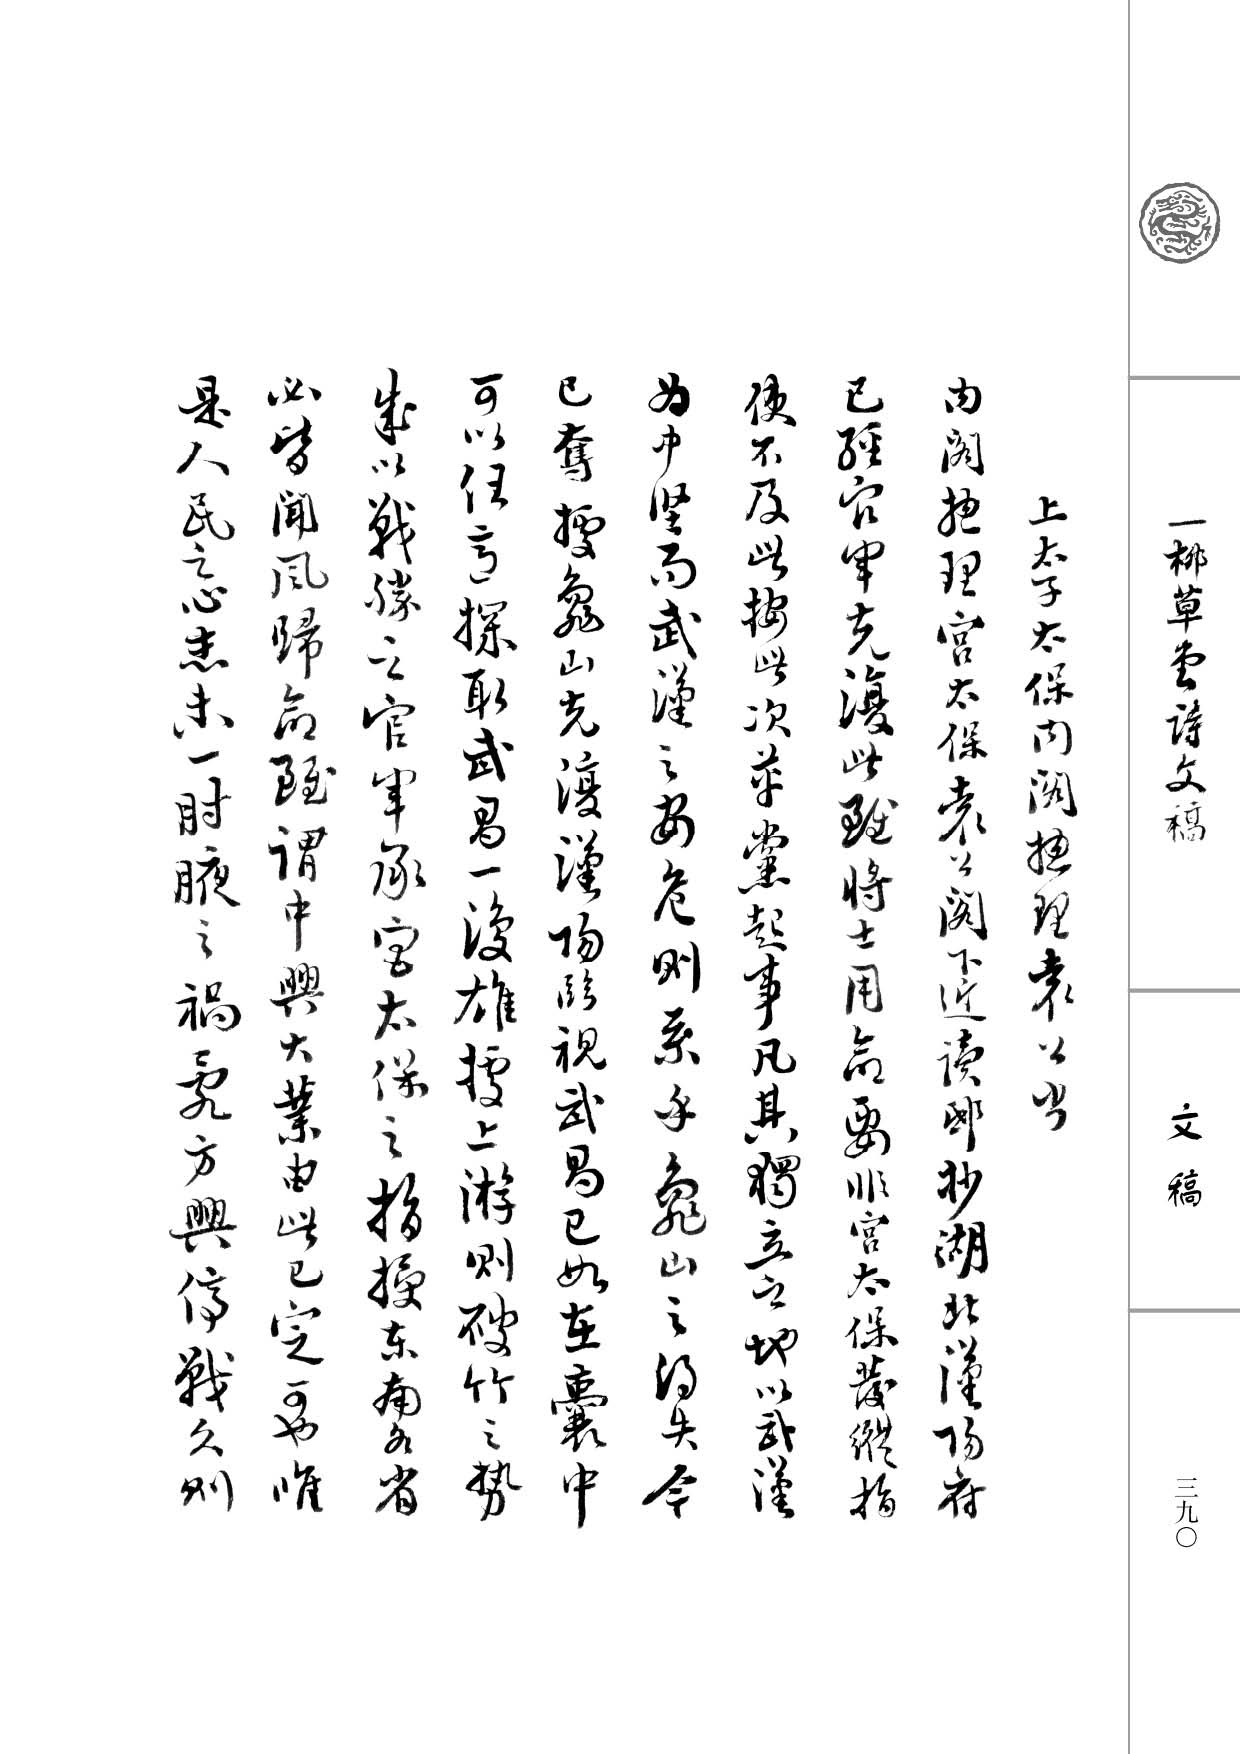 上太子太保内閣總理袁公書
内閣總理宫太保袁公閣下近讀邸抄湖北漢陽府
已經官軍克復此雖將士用命要非宫太保發縱指
使不及此按此次革黨起事凡其獨立之地以武漢
为中坚而武漢之安危則系乎龜山之得失今
已奪據龜山克復漢陽臨視武昌已如在囊中
可以任意探取武昌一復雄據上游則破竹之勢
成以戰勝之官軍承宫太保之指揮東南各省
必皆聞風歸命雖謂中興大業由此已定可也唯
是人民之心志未一肘腋之禍亂方興停戰久則
一柳草堂詩文稿
文稿
三九〇